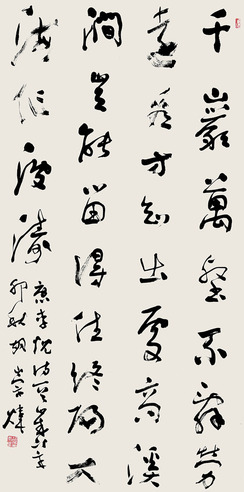 千巖萬壑不辭勞
遠看方知出處高溪
澗豈能留得住終歸大
海作波濤
唐李忱詩
卯秋胡崇煒